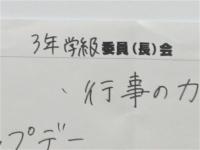 3年学級委員(長)会
、行事の力
プデー